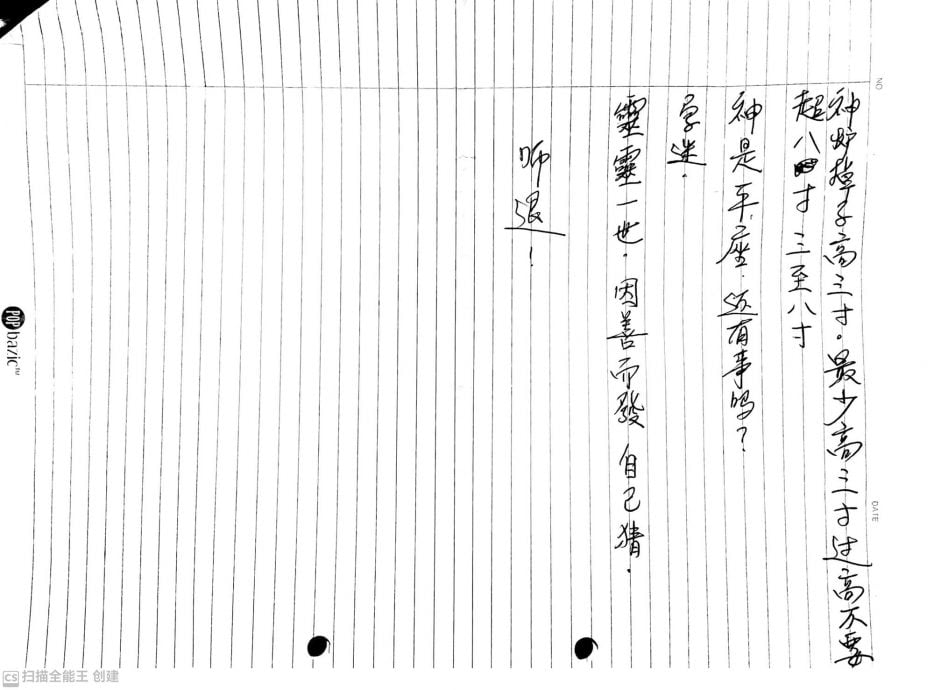 神炉掉子高三寸。最少高三寸过高不要
超八寸三至八寸
神是平座.还有事吗?
字迷.
靈靈一世.因善而發 自己猜.
师退!
NO
DATE
POP bazic™
CS 扫描全能王 创建